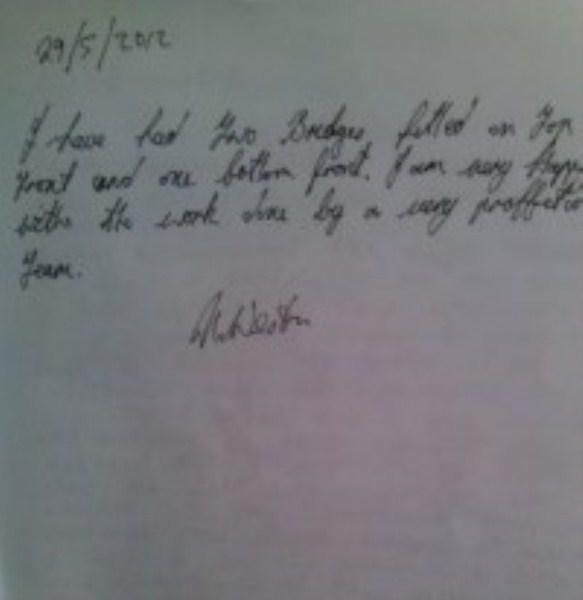 29/5/2012
I have had Two Bridges fitted on Top
Front and one bottom front. I am very Happ
with the work done by a very proffetio
Team.